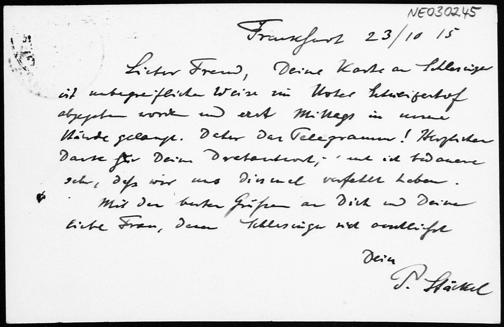 NE030245
Frankfurt 23/10 15
Lieber Freund, Deine Karte an Schlesinger
ist unbegreiflicher Weise im Hotel Schweizerhof
abgegeben worden und erst Mittags in unsere
Hände gelangt. Daher das Telegramm! Herzlichen
Dank für Deine Drahtantwort, und ich bedauere
sehr, daß wir uns diesmal verfehlt haben.
Mit den besten Grüßen an Dich und Deine
liebe Frau, denen Schlesinger sich anschließt
Dein
P. Stäckel